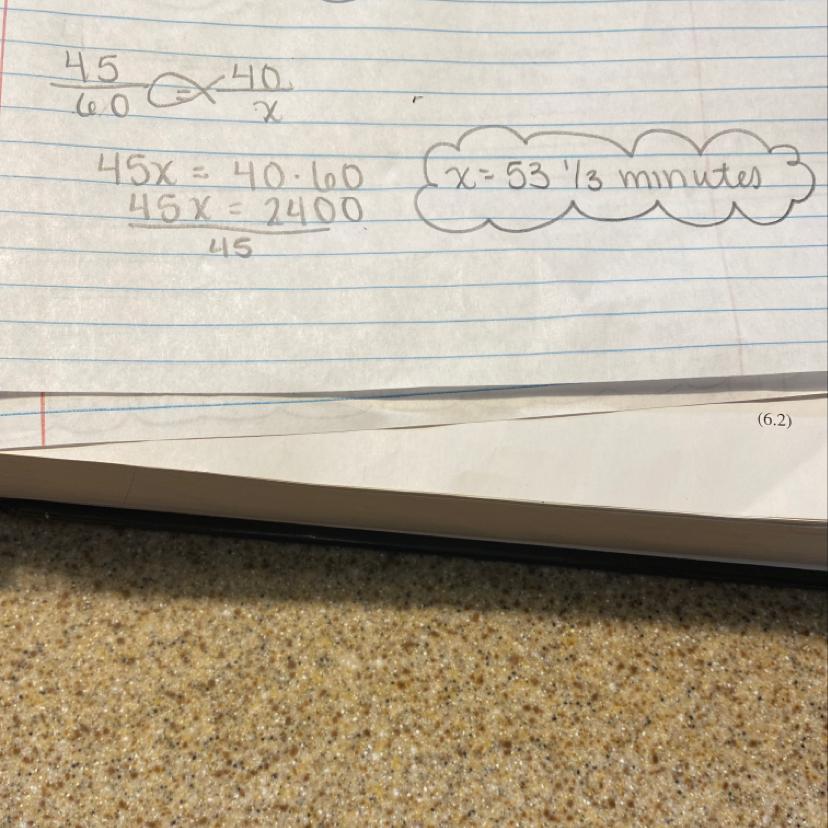 45/60 = 40/x
45x = 40·60
45x = 2400
45
x = 53 1/3 minutes
(6.2)